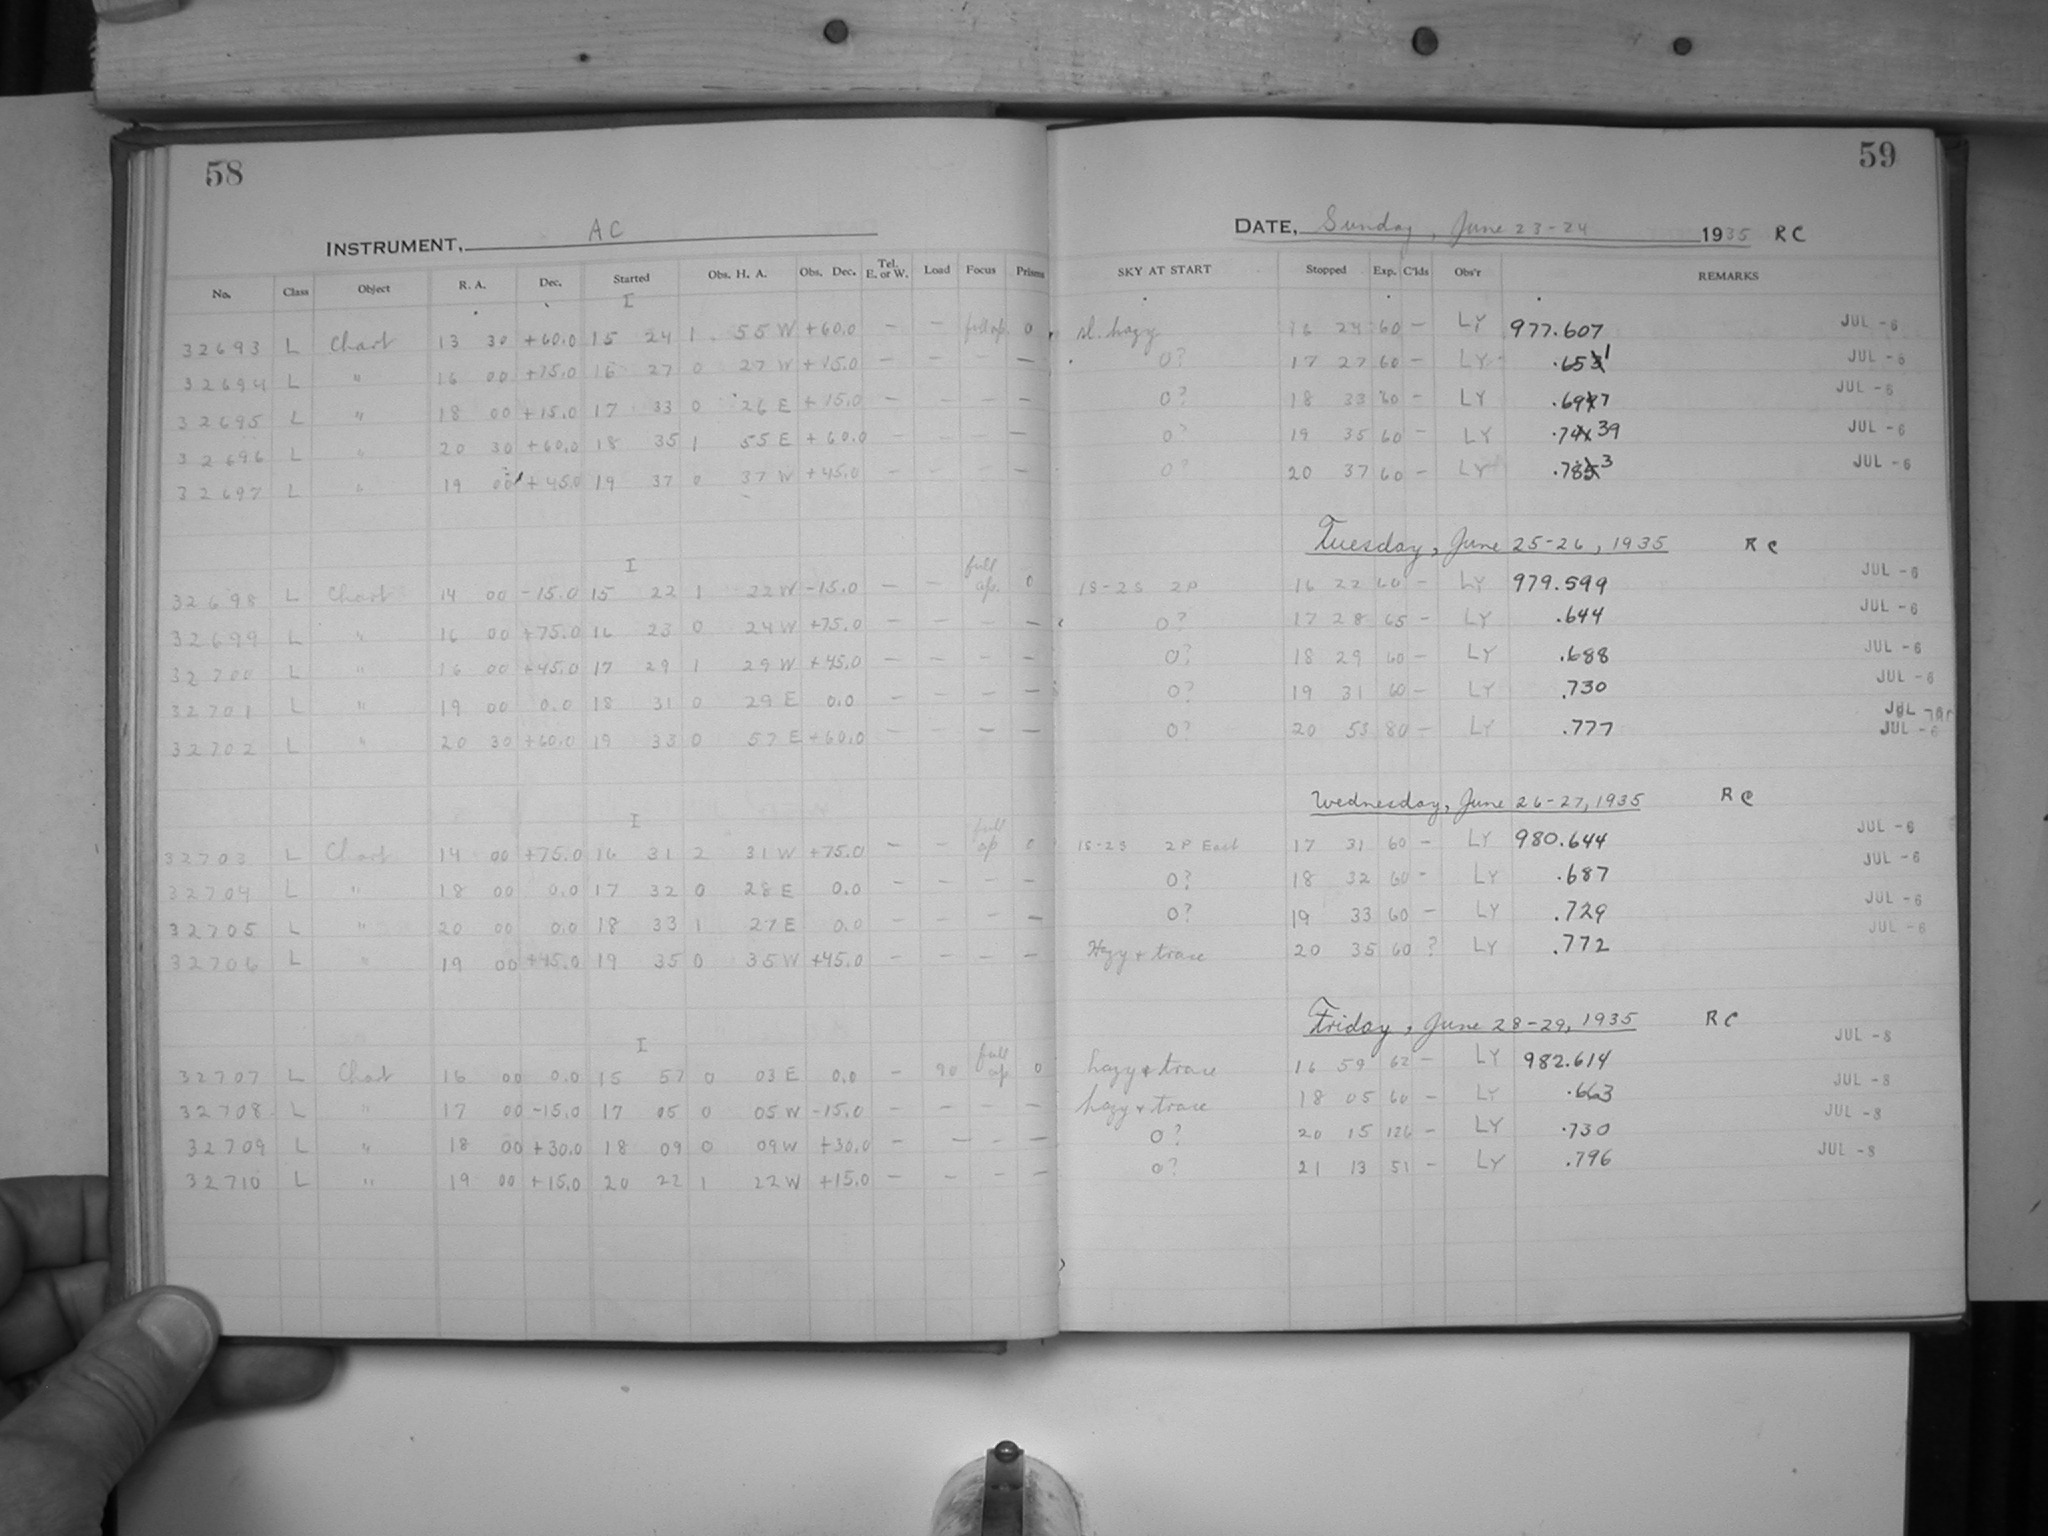 58
INSTRUMENT, AC
No. Class Object R. A. Dec. Started Obs. H. A. Obs. Dec. Tel. E. or W. Load Focus Prisms
I
32693 L Chart 13 30 +60.0 15 24 1 55 W +60.0 — — full ap. 0
32694 L " 16 00 +75.0 16 27 0 27 W +75.0 — — — —
32695 L " 18 00 +15.0 17 33 0 26 E +15.0 — — — —
32696 L " 20 30 +60.0 18 35 1 55 E +60.0 — — — —
32697 L " 19 00 +45.0 19 37 0 37 W +45.0 — — — —
I
32698 L Chart 14 00 -15.0 15 22 1 22 W -15.0 — — full ap. 0
32699 L " 16 00 +75.0 16 23 0 24 W +75.0 — — — —
32700 L " 16 00 +45.0 17 29 1 29 W +45.0 — — — —
32701 L " 19 00 0.0 18 31 0 29 E 0.0 — — — —
32702 L " 20 30 +60.0 19 33 0 57 E +60.0 — — — —
I
32703 L Chart 14 00 +75.0 16 31 2 31 W +75.0 — — full ap 0
32704 L " 18 00 0.0 17 32 0 28 E 0.0 — — — —
32705 L " 20 00 0.0 18 33 1 27 E 0.0 — — — —
32706 L " 19 00 +45.0 19 35 0 35 W +45.0 — — — —
I
32707 L Chart 16 00 0.0 15 57 0 03 E 0.0 — 90 full ap 0
32708 L " 17 00 -15.0 17 05 0 05 W -15.0 — — — —
32709 L " 18 00 +30.0 18 09 0 09 W +30.0 — — — —
32710 L " 19 00 +15.0 20 22 1 22 W +15.0 — — — —
59
DATE, Sunday, June 23-24 1935 RC
SKY AT START Stopped Exp. C'lds Obs'r REMARKS
sl. hazy 16 24 60 — LY 977.607 JUL -6
0? 17 27 60 — LY .651 JUL -6
0? 18 33 60 — LY .697 JUL -6
0? 19 35 60 — LY .739 JUL -6
0? 20 37 60 — LY .783 JUL -6
Tuesday, June 25-26, 1935 RC
1S-2S 2P 16 22 60 — LY 979.599 JUL -6
0? 17 28 65 — LY .644 JUL -6
0? 18 29 60 — LY .688 JUL -6
0? 19 31 60 — LY .730 JUL -6
0? 20 53 80 — LY .777 JUL -6
Wednesday, June 26-27, 1935 RC
1S-2S 2P East 17 31 60 — LY 980.644 JUL -6
0? 18 32 60 — LY .687 JUL -6
0? 19 33 60 — LY .729 JUL -6
Hazy + trace 20 35 60 ? LY .772 JUL -6
Friday, June 28-29, 1935 RC
hazy + trace 16 59 62 — LY 982.614 JUL -8
hazy + trace 18 05 60 — LY .663 JUL -8
0? 20 15 126 — LY .730 JUL -8
0? 21 13 51 — LY .796 JUL -8